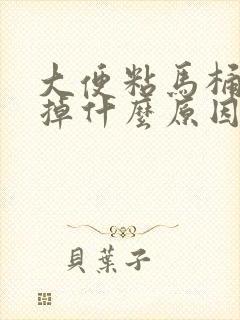 大便粘馬桶
掉什麼原因
貝葉子